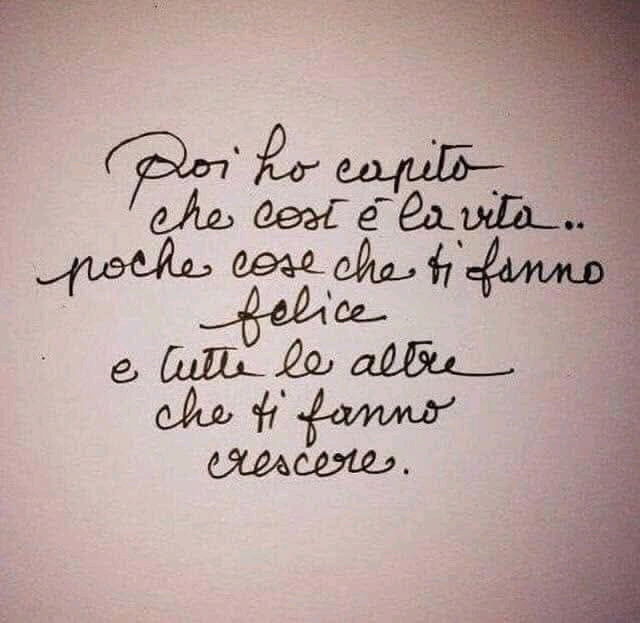 Poi ho capito
che così è la vita..
poche cose che ti fanno
felice
e tutte le altre
che ti fanno
crescere.